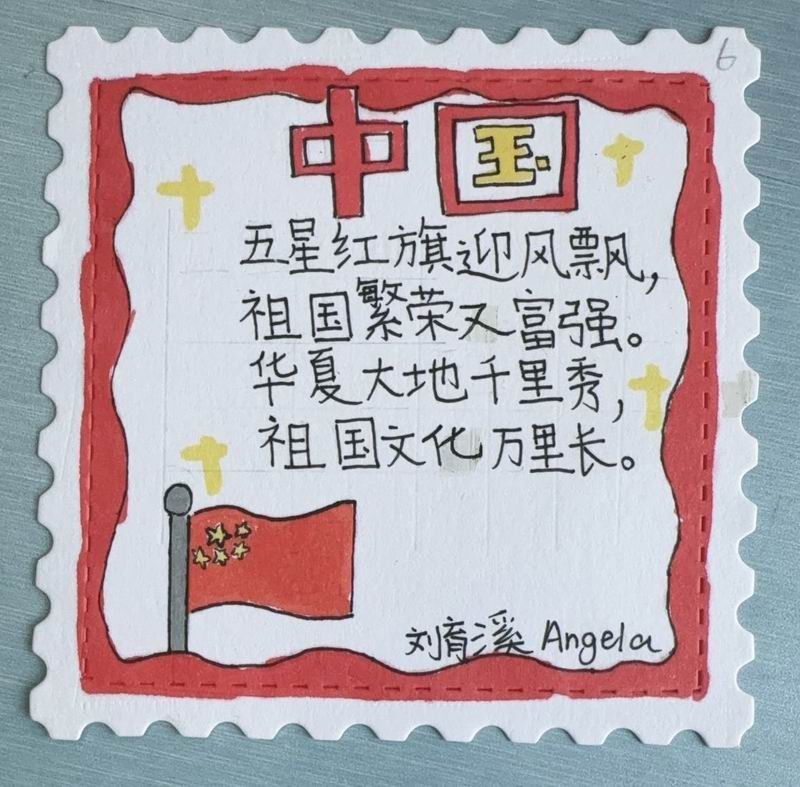 6
中国
五星红旗迎风飘，
祖国繁荣又富强。
华夏大地千里秀，
祖国文化万里长。
刘育溪 Angela